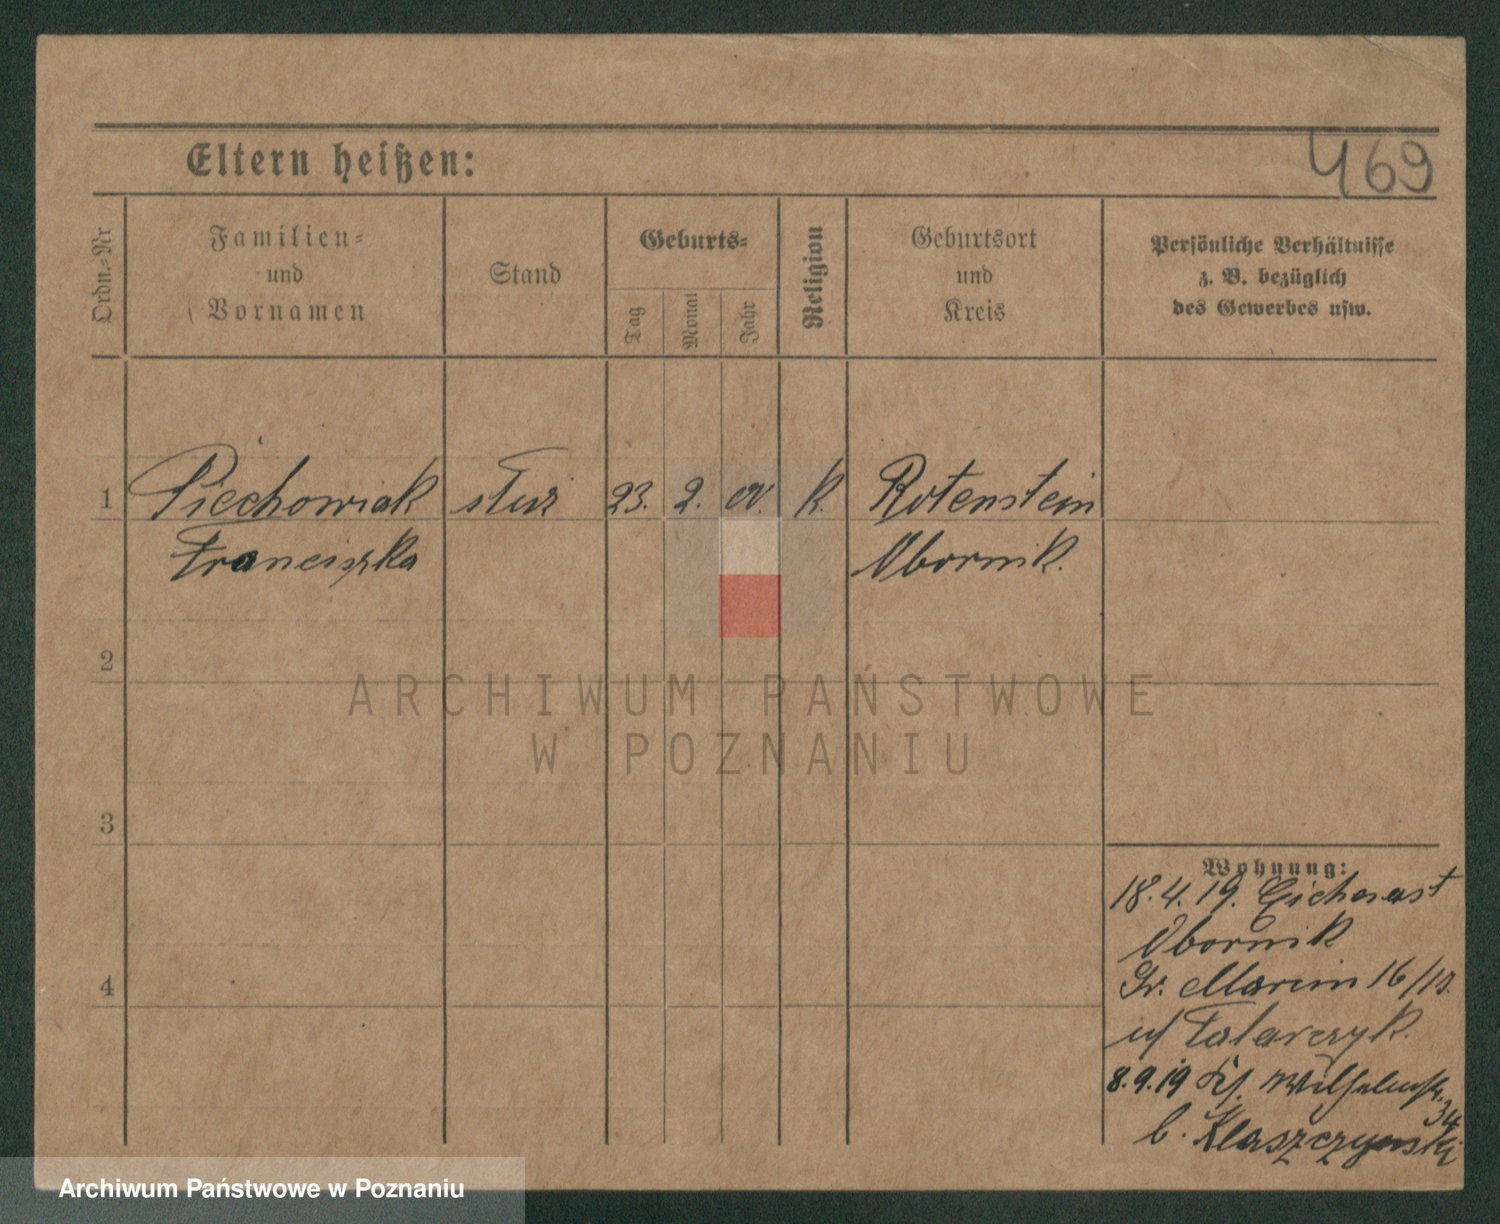 Eltern heißen:
469
Ordn.-Nr
Familien-
und
Vornamen
Stand
Geburts-
Tag
Monat
Jahr
Religion
Geburtsort
und
Kreis
Persönliche Verhältnisse
z. B. bezüglich
des Gewerbes usw.
1 Piechowiak 23. 2. K. Rotenstein
Franciszka Obornik.
2
3
4
Wohnung:
18.4.19.
Obornik
16/
Talarczyk.
8.9.19
34
b. Klaszczynski
ARCHIWUM PAŃSTWOWE
W POZNANIU
Archiwum Państwowe w Poznaniu